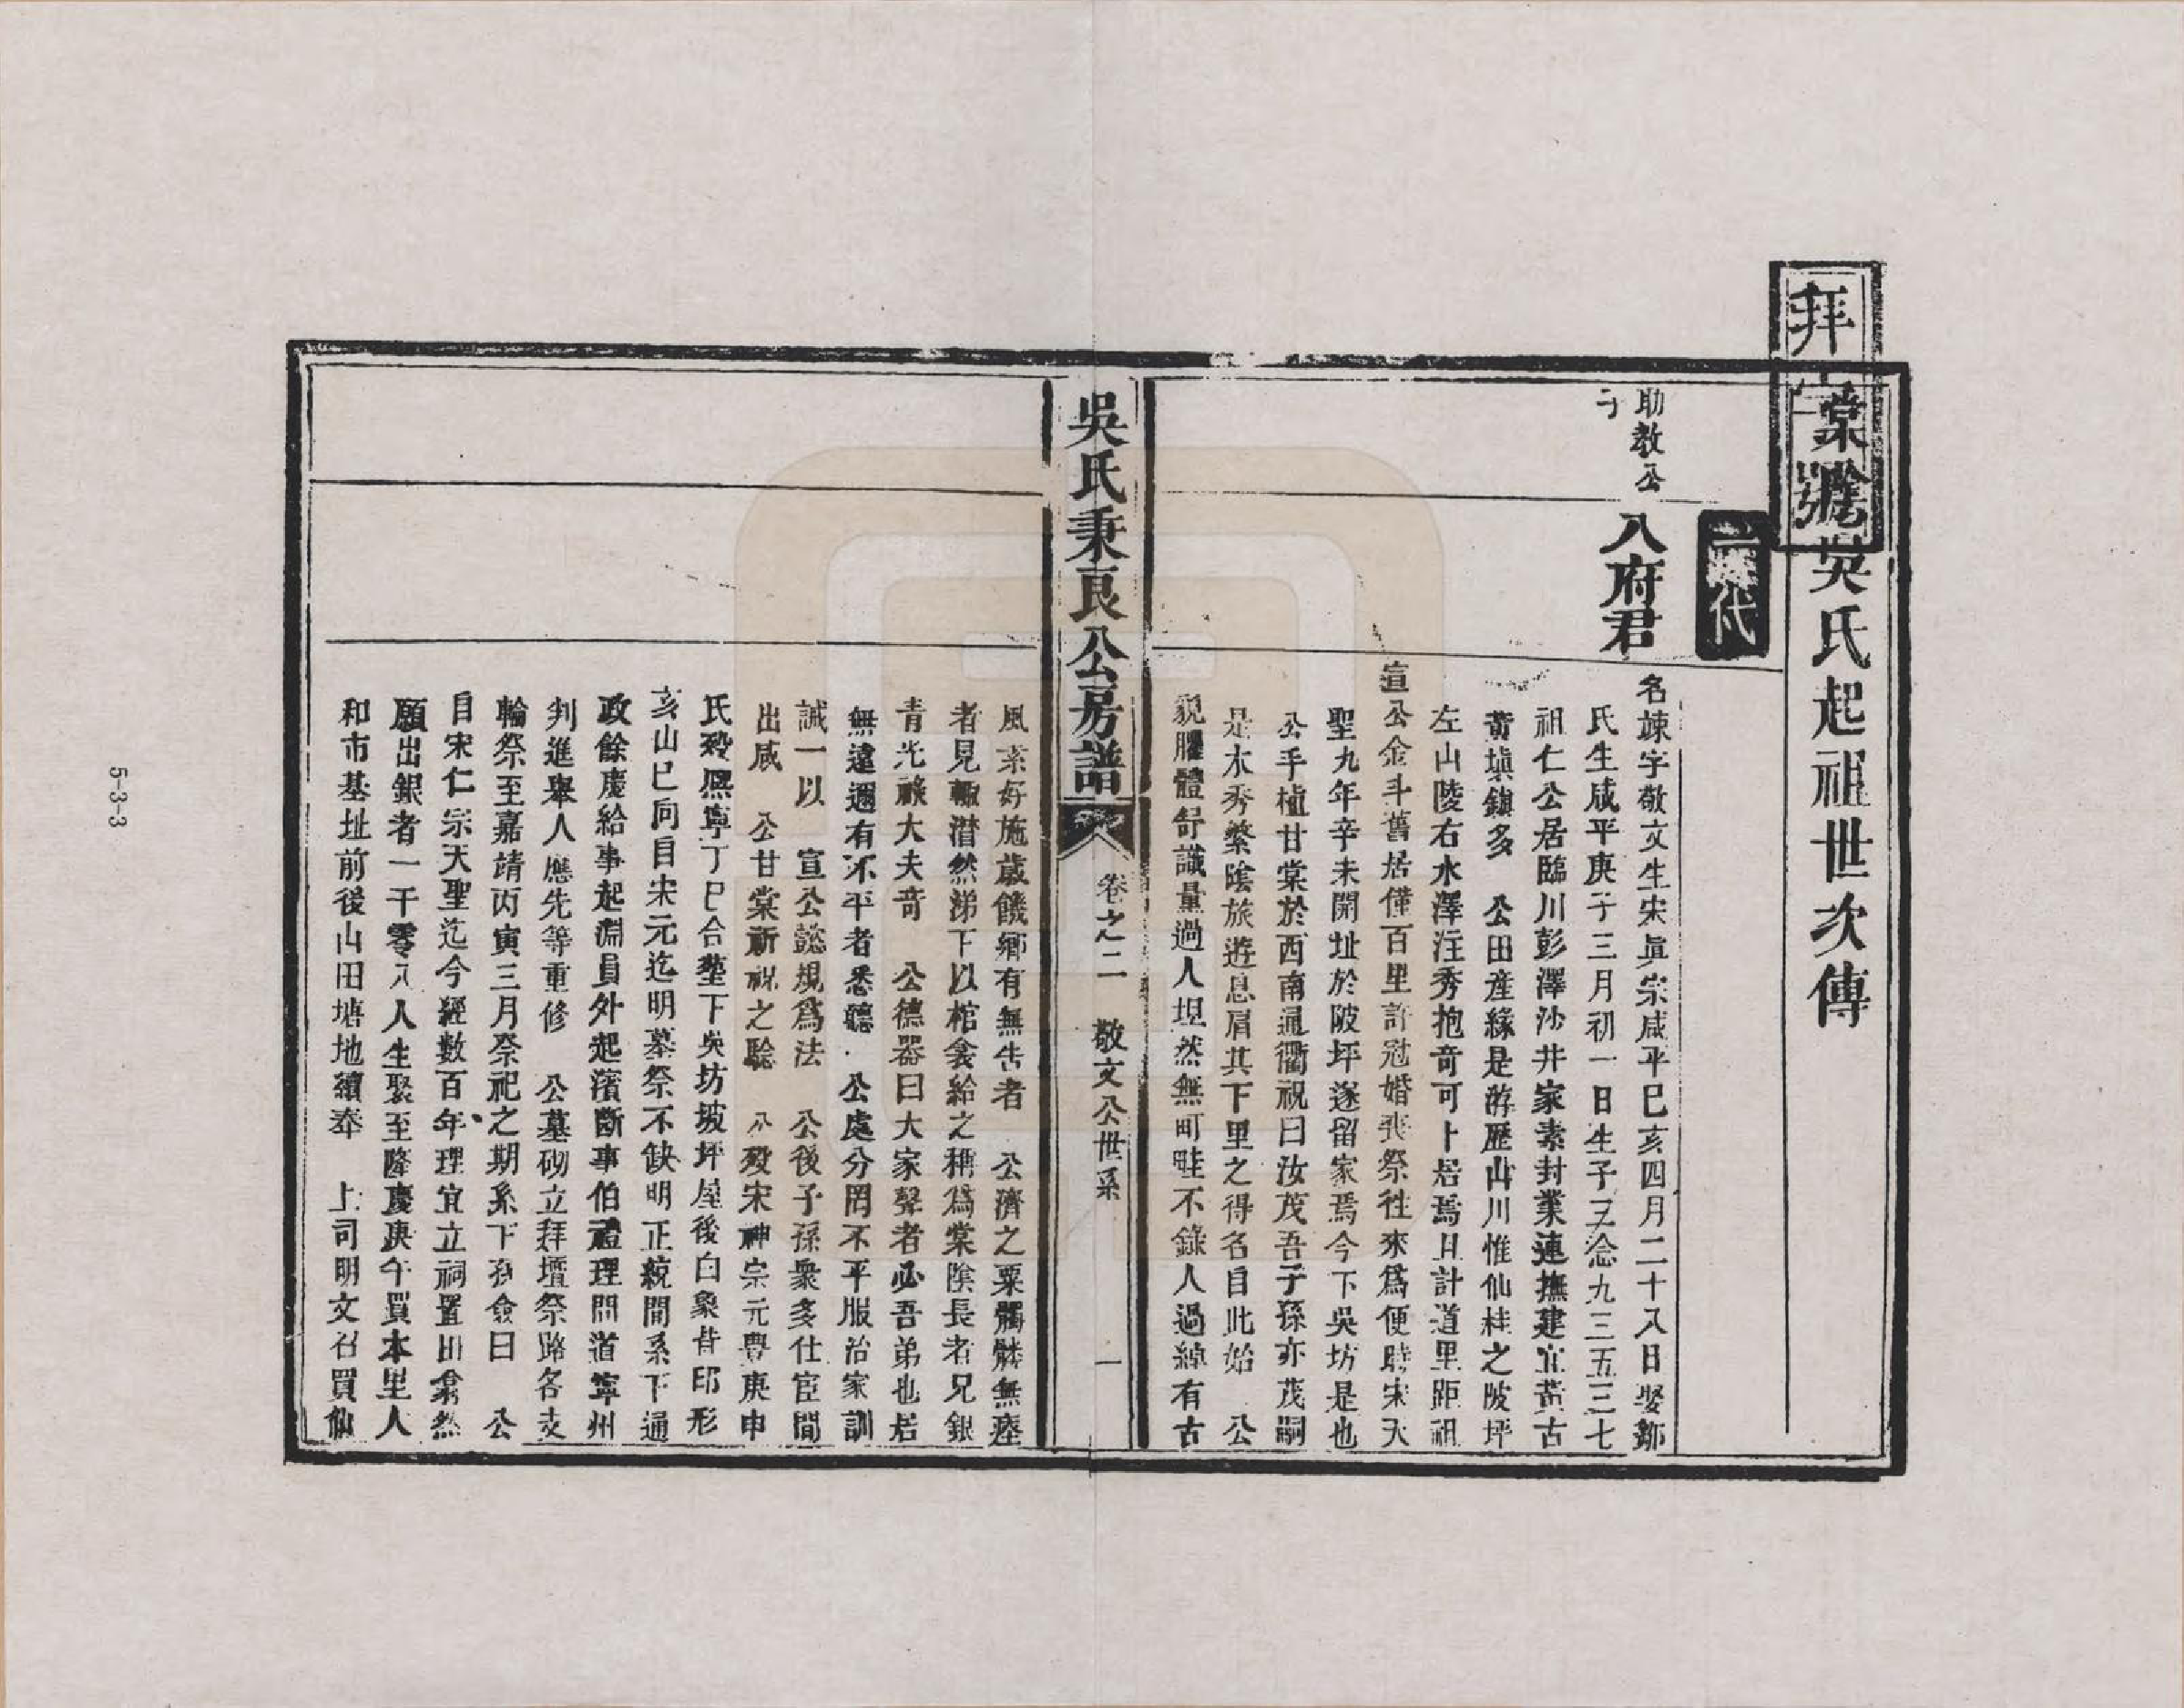 棠陰吳氏起祖世次傳
拜
號
代
助教公
子
八府君
名竦字敬文生宋眞宗咸平巳亥四月二十八日娶鄒
氏生咸平庚子三月初一日生子三念九三五三七
祖仁公居臨川彭澤沙井家素封業連撫建宜黃古
黃塡鎮多 公田產緣是游歷山川惟仙桂之陂坪
左山陵右水澤注秀抱奇可卜居焉且計道里距祖
宣公金斗舊居僅百里許冠婚喪祭往來爲便時宋天
聖九年辛未開址於陂坪遂留家焉今下吳坊是也
公手植甘棠於西南通衢祝曰汝茂吾子孫亦茂嗣
是木秀繁陰旅遊息肩其下里之得名自此始 公
貌臞體舒識量過人坦然無町畦不錄人過綽有古
吳氏秉良公房譜
卷之二 敬文公世系
一
風素好施歲饑鄉有無告者 公濟之粟髑髏無瘞
者見輒潸然涕下以棺衾給之稱爲棠陰長者兄銀
青光祿大夫奇 公德器曰大家聲者必吾弟也居
無遠邇有不平者悉聽 公處分罔不平服治家訓
誠一以 宣公懿規爲法 公後子孫衆多仕宦間
出咸 公甘棠祈祝之驗 公歿宋神宗元豐庚申
氏歿熙寧丁巳合塟下吳坊坡坪屋後白象背印形
亥山巳向自宋元迄明墓祭不缺明正統間系下通
政餘慶給事起淵員外起濱斷事伯禮理問道寧州
判進舉人應先等重修 公墓砌立拜壇祭路各支
輪祭至嘉靖丙寅三月祭祀之期系下孫僉曰 公
自宋仁宗天聖迄今經數百年理宜立祠置田翕然
願出銀者一千零八人生聚至隆慶庚午買本里人
和市基址前後山田塘地續奉 上司明文召買仙
5-3-3